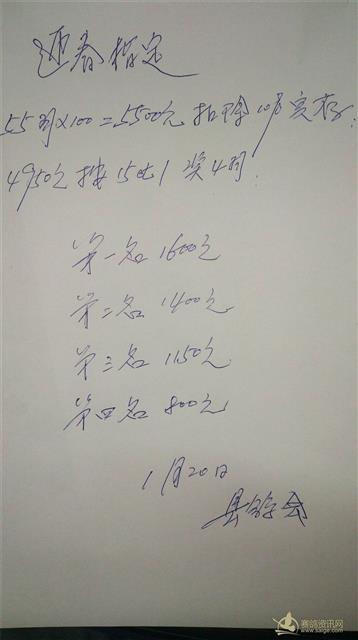 迎春指定
55羽×100=5500元 扣除10%实存
4950元 按15比1奖4羽.
第一名 1600元
第二名 1400元
第三名 1150元
第四名 800元
1月20日
县鸽会
赛鸽资讯网
www.saige.com